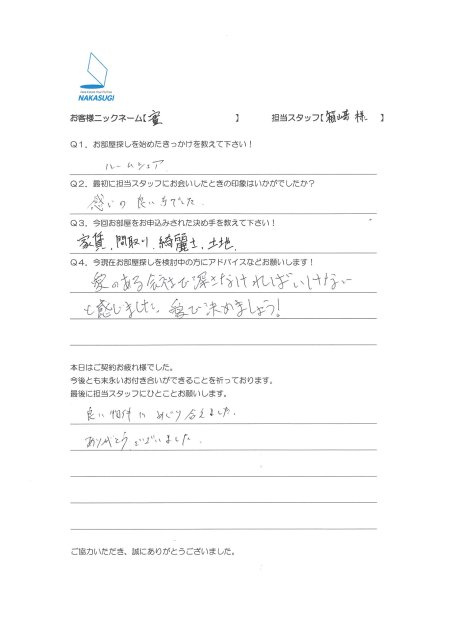 NAKASUGI
お客様ニックネーム【 蜜 】 担当スタッフ【 箱崎 様 】
Q1．お部屋探しを始めたきっかけを教えて下さい！
ルームシェア
Q2．最初に担当スタッフにお会いしたときの印象はいかがでしたか？
感じの良い方でした．
Q3．今回お部屋をお申込みされた決め手を教えて下さい！
家賃，間取り，綺麗さ，土地．
Q4．今現在お部屋探しを検討中の方にアドバイスなどお願いします！
愛のある会社で探さなければいけない
と感じました．愛で決めましょう！
本日はご契約お疲れ様でした。
今後とも末永いお付き合いができることを祈っております。
最後に担当スタッフにひとことお願いします。
良い物件にめぐり合えました．
ありがとうございました．
ご協力いただき、誠にありがとうございました。